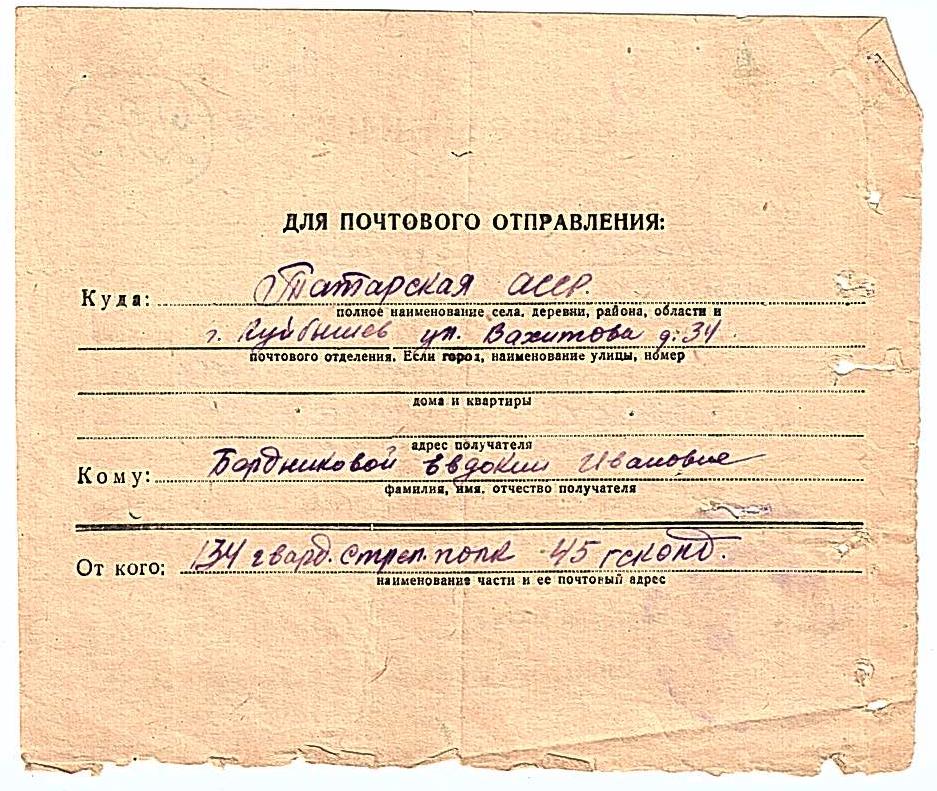 ДЛЯ ПОЧТОВОГО ОТПРАВЛЕНИЯ:
Куда: Татарская асср.
полное наименование села, деревни, района, области и
г. Куйбышев ул. Вахитова д. 34
почтового отделения. Если город, наименование улицы, номер
дома и квартиры
адрес получателя
Кому: Бордниковой Евдокии Ивановне
фамилия, имя, отчество получателя
От кого: 134 гвард. стрел. полк 45
наименование части и ее почтовый адрес